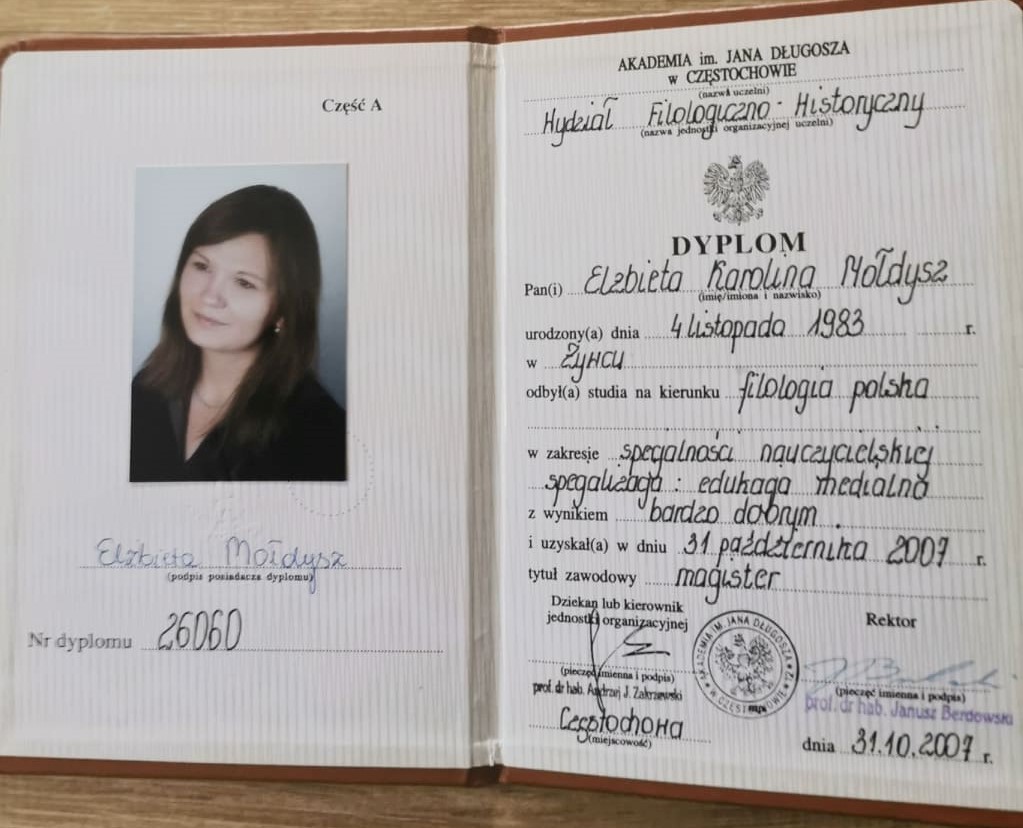 Część A
Elżbieta Mołdysz
(podpis posiadacza dyplomu)
Nr dyplomu 26060
AKADEMIA im. JANA DŁUGOSZA
w CZĘSTOCHOWIE
(nazwa uczelni)
Wydział Filologiczno-Historyczny
(nazwa jednostki organizacyjnej uczelni)
DYPLOM
Pan(i) Elżbieta Karolina Mołdysz
(imię/imiona i nazwisko)
urodzony(a) dnia 4 listopada 1983 r.
w Żywcu
odbył(a) studia na kierunku filologia polska
w zakresie specjalności nauczycielskiej
specjalizacja: edukacja medialna
z wynikiem bardzo dobrym.
i uzyskał(a) w dniu 31 października 2007 r.
tytuł zawodowy magister
Dziekan lub kierownik
jednostki organizacyjnej
(pieczęć imienna i podpis)
prof. dr hab. Andrzej J. Zakrzewski
Częstochowa
(miejscowość)
AKADEMIA IM. JANA DŁUGOSZA
W CZĘSTOCHOWIE
mpk
Rektor
(pieczęć imienna i podpis)
prof. dr hab. Janusz Berdowski
dnia 31.10.2007 r.